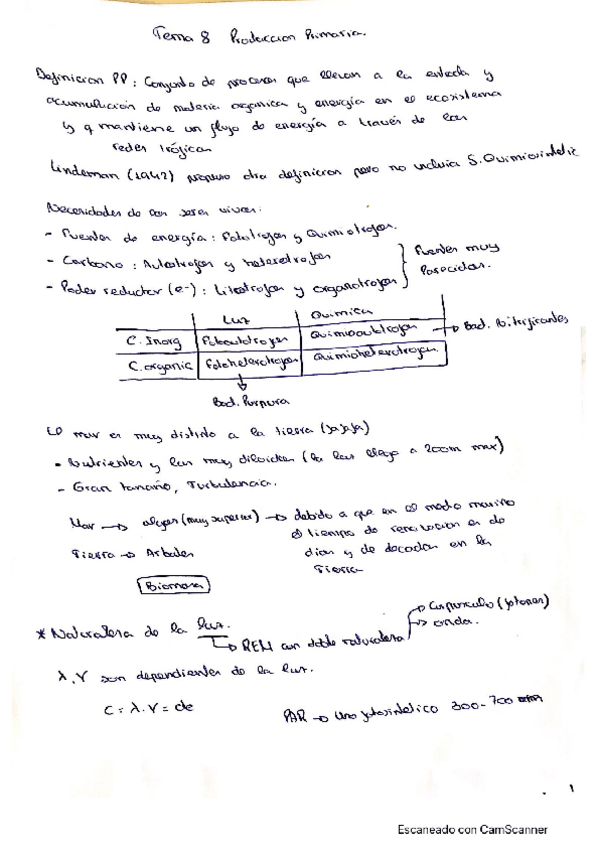 Tema 8 Produccion Primaria.
Definicion PP: Conjunto de procesos que llevan a la entrada y
acumulación de materia organica y energía en el ecosistema
y q mantiene un flujo de energía a través de las
redes tróficas
Lindeman (1942) propuso otra definicion pero no incluia S. Quimiosintetic
Necesidades de los seres vivos:
- Fuentes de energía: Fototrofos y Quimiotrofos.
- Carbono: Autotrofos y heterotrofos
- Poder reductor (e-): Litotrofos y organotrofos
Fuentes muy
Parecidas.
Luz Química
C. Inorg Fotoautotrofos Quimioautotrofos → Bact. Nitrificantes
C. organic Fotoheterotrofos Quimioheterotrofos
Bact. Purpura
El mar es muy distinto a la tierra (jajaja)
- Nutrientes y luz muy diluidos (la luz llega a 200m max)
- Gran tamaño, Turbulencia.
Mar → algas (muy superior) → debido a que en el medio marino
el tiempo de renovacion es de
Tierra → Arboles
dias y de decadas en la
Tierra
Biomasa
* Naturaleza de la luz.
→ REM con doble naturaleza
→ Corpusculo (fotones)
→ onda.
λ, γ son dependientes de la luz.
C = λ. γ = cte
PAR → Uso fotosintetico 300-700
1
Escaneado con CamScanner